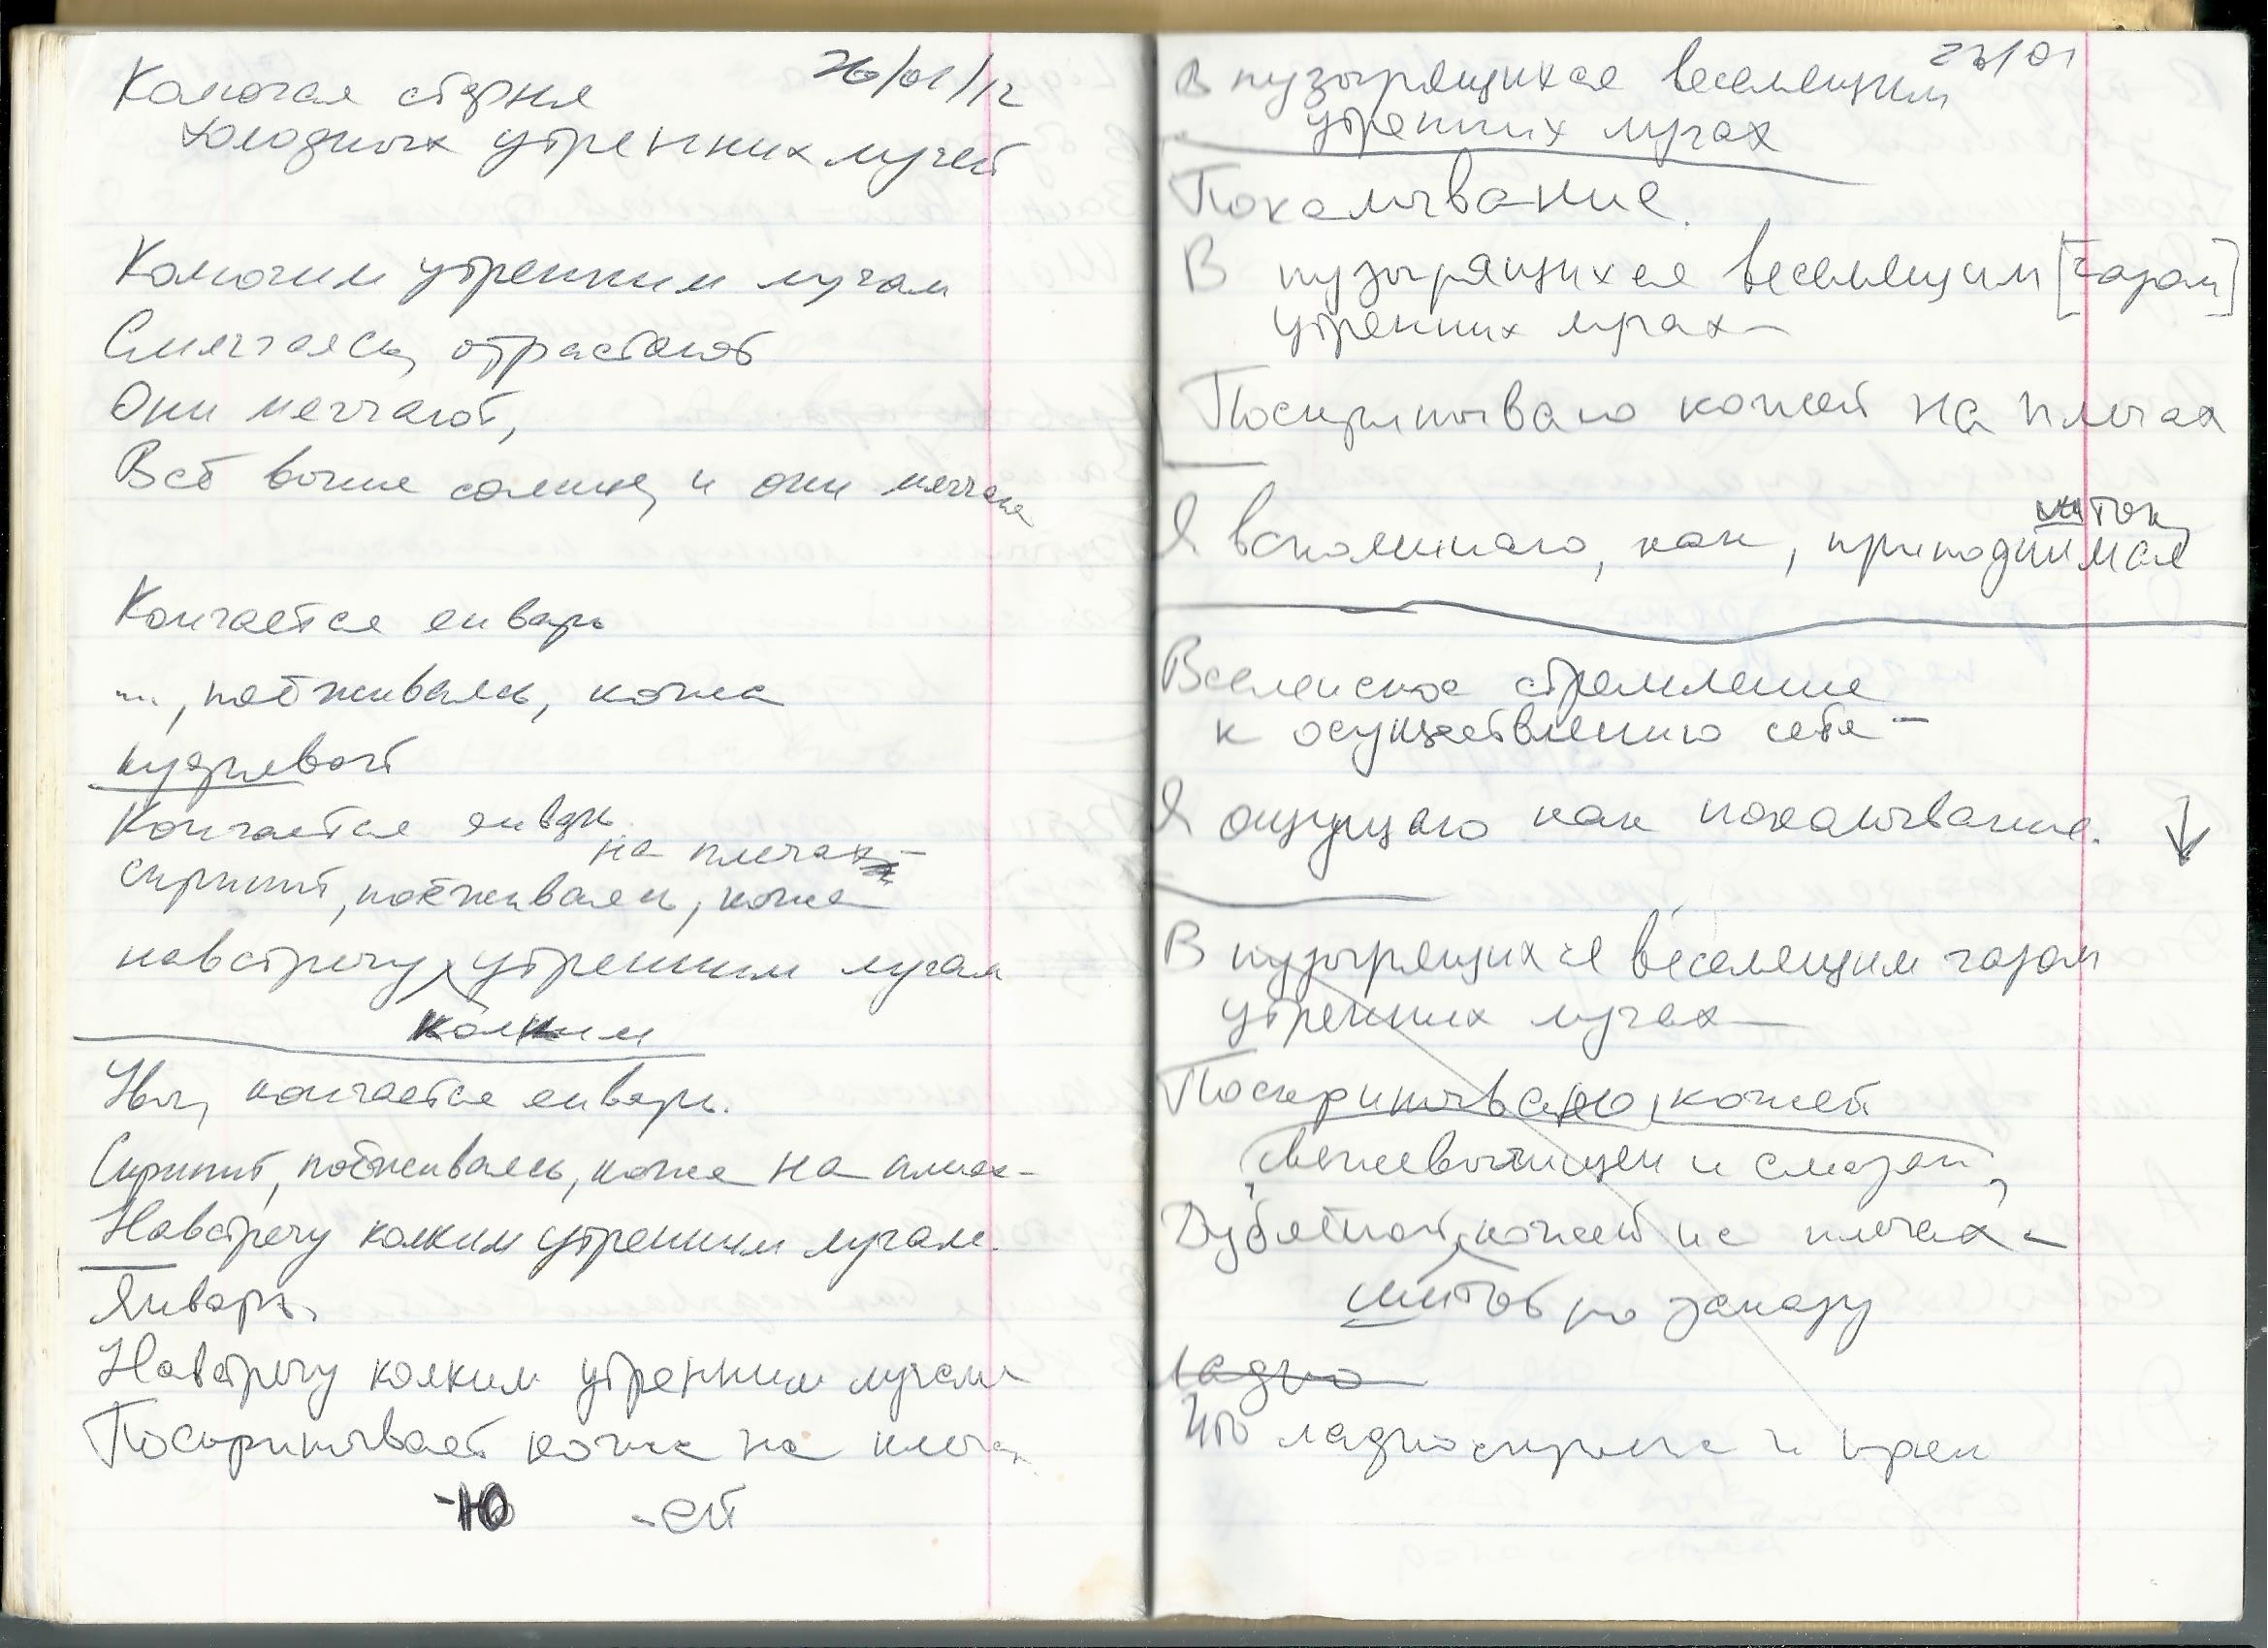 26/01/12
Колючая стерня
холодных утренних лучей
Колючим утренним лучам
Смягчаясь, отрастают
Они мягчают,
Всё выше солнце, и они мягчают
Кончается январь
..., поёживаясь, кожа
кудрявой
Кончается январь.
на плечах –
скрипит, поёживаясь, кожа
навстречу утренним лучам
колким
Увы, кончается январь.
Скрипит, поёживаясь, кожа на плечах –
Навстречу колким утренним лучам.
Январь.
Навстречу колким утренним лучам
Поскрипывает кожа на плечах
-ю -ей
27/01
В пузырящихся веселящим
утренних лучах
Покалывание.
В пузырящихся веселящим [газом]
утренних лучах –
Поскрипываю кожей на плечах
Я вспоминаю, как, приподнимая
Вселенское стремление
к осуществлению себя –
Я ощущаю как покалывание.
В пузырящихся веселящим газом
утренних лучах –
Поскрипываю, кожей
Дублёной кожей на плечах –
по заказу
ладно
Что ладно скроена и